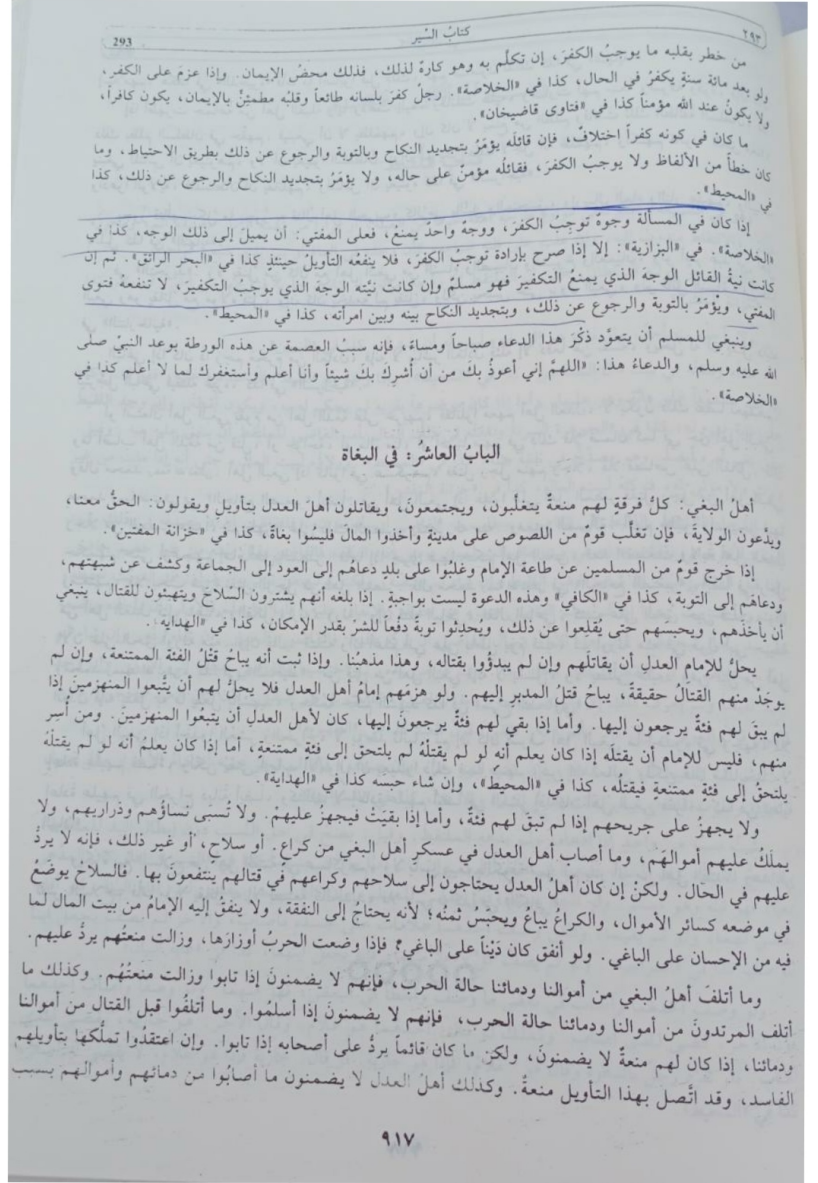 ٢٩٣ كتابُ السِّير 293
من خطر بقلبه ما يوجبُ الكفرَ، إن تكلَّم به وهو كارهٌ لذلك، فذلك محضُ الإيمان. وإذا عزمَ على الكفرِ،
ولو بعد مائة سنةٍ يكفرُ في الحال، كذا في «الخلاصة». رجلٌ كفرَ بلسانه طائعاً وقلبه مطمئنٌّ بالإيمان، يكون كافراً،
ولا يكونُ عند الله مؤمناً كذا في «فتاوى قاضيخان».
ما كان في كونه كفراً اختلافٌ، فإن قائلَه يؤمَرُ بتجديد النكاح وبالتوبة والرجوع عن ذلك بطريق الاحتياط، وما
كان خطأً من الألفاظ ولا يوجبُ الكفرَ، فقائلُه مؤمنٌ على حاله، ولا يؤمَرُ بتجديد النكاح والرجوع عن ذلك، كذا
في «المحيط».
إذا كان في المسألة وجوهٌ توجِبُ الكفرَ، ووجهٌ واحدٌ يمنعُ، فعلى المفتي: أن يميلَ إلى ذلك الوجه، كذا في
«الخلاصة». في «البزازية»: إلا إذا صرح بإرادة توجبُ الكفرَ، فلا ينفعُه التأويلُ حينئذٍ كذا في «البحر الرائق». ثم إن
كانت نيةُ القائل الوجهَ الذي يمنعُ التكفيرَ فهو مسلمٌ وإن كانت نيّته الوجهَ الذي يوجبُ التكفيرَ، لا تنفعهُ فتوى
المفتي، ويُؤمَرُ بالتوبة والرجوع عن ذلك، وبتجديد النكاح بينه وبين امرأته، كذا في «المحيط».
وينبغي للمسلم أن يتعوَّد ذكْرَ هذا الدعاء صباحاً ومساءً، فإنه سببُ العصمة عن هذه الورطة بوعد النبيِّ صلى
الله عليه وسلم، والدعاءُ هذا: «اللهمَّ إني أعوذُ بكَ من أن أُشركَ بكَ شيئاً وأنا أعلم وأستغفرك لما لا أعلم كذا في
«الخلاصة».
البابُ العاشرُ: في البغاة
أهلُ البغي: كلُّ فرقةٍ لهم منعةٌ يتغلَّبون، ويجتمعونَ، ويقاتلون أهلَ العدل بتأويلٍ ويقولون: الحقُّ معنا،
ويدَّعون الولايةَ، فإن تغلَّب قومٌ من اللصوص على مدينةٍ وأخذوا المالَ فليسُوا بغاةً، كذا في «خزانة المفتين».
إذا خرج قومٌ من المسلمين عن طاعة الإمام وغلبُوا على بلدٍ دعاهُم إلى العود إلى الجماعة وكشف عن شبهتهم،
ودعاهُم إلى التوبة، كذا في «الكافي» وهذه الدعوة ليست بواجبةٍ. إذا بلغه أنهم يشترون السِّلاحَ ويتهيئون للقتال، ينبغي
أن يأخذَهم، ويحبسَهم حتى يُقلِعوا عن ذلك، ويُحدِثوا توبةً دفْعاً للشرِّ بقدر الإمكان، كذا في «الهداية».
يحلُّ للإمامِ العدلِ أن يقاتلَهم وإن لم يبدؤوا بقتاله، وهذا مذهبُنا. وإذا ثبت أنه يباحُ قتلُ الفئة الممتنعة، وإن لم
يوجَدْ منهم القتالُ حقيقةً، يباحُ قتلُ المدبرِ إليهم. ولو هزمَهم إمامُ أهل العدل فلا يحلُّ لهم أن يتَّبعوا المنهزمينَ إذا
لم يبقَ لهم فئةٌ يرجعون إليها. وأما إذا بقي لهم فئةٌ يرجعونَ إليها، كان لأهل العدلِ أن يتبعُوا المنهزمينَ. ومن أُسِر
منهم، فليس للإمام أن يقتلَه إذا كان يعلم أنه لو لم يقتلْهُ لم يلتحق إلى فئةٍ ممتنعةٍ، أما إذا كان يعلمُ أنه لو لم يقتلْهُ
يلتحقُ إلى فئةٍ ممتنعةٍ فيقتلُه، كذا في «المحيط»، وإن شاء حبسَه كذا في «الهداية».
ولا يجهزُ على جريحهم إذا لم تبقَ لهم فئةٌ، وأما إذا بقيَتْ فيجهزُ عليهمْ. ولا تُسبَى نساؤُهم وذراريهم، ولا
يملَكُ عليهم أموالهَم، وما أصاب أهل العدل في عسكرِ أهل البغي من كراعٍ. أو سلاحٍ، أو غير ذلك، فإنه لا يردُّ
عليهم في الحَال. ولكنْ إن كان أهلُ العدل يحتاجون إلى سلاحهم وكراعهم في قتالهم ينتفعونَ بها. فالسلاحُ يوضَعُ
في موضعه كسائر الأموال، والكراعُ يباعُ ويحبَّسُ ثمنُه؛ لأنه يحتاجُ إلى النفقة، ولا ينفقُ إليه الإمامُ من بيت المال لما
فيه من الإحسان على الباغي. ولو أنفق كان دَيْناً على الباغي؟ فإذا وضعت الحربُ أوزارَها، وزالت منعتُهم يردُّ عليهم.
وما أتلفَ أهلُ البغي من أموالنا ودمائنا حالة الحرب، فإنهم لا يضمنونَ إذا تابوا وزالت منعتُهُم. وكذلك ما
أتلف المرتدونَ من أموالنا ودمائنا حالة الحرب، فإنهم لا يضمنونَ إذا أسلمُوا. وما أتلفُوا قبل القتال من أموالنا
ودمائنا، إذا كان لهم منعةٌ لا يضمنونَ، ولكن ما كان قائماً يردُّ على أصحابه إذا تابوا. وإن اعتقدُوا تملُّكها بتأويلهم
الفاسد، وقد اتَّصل بهذا التأويل منعةٌ. وكذلك أهلُ العدل لا يضمنون ما أصابُوا من دمائهم وأموالهم بسبب
٩١٧